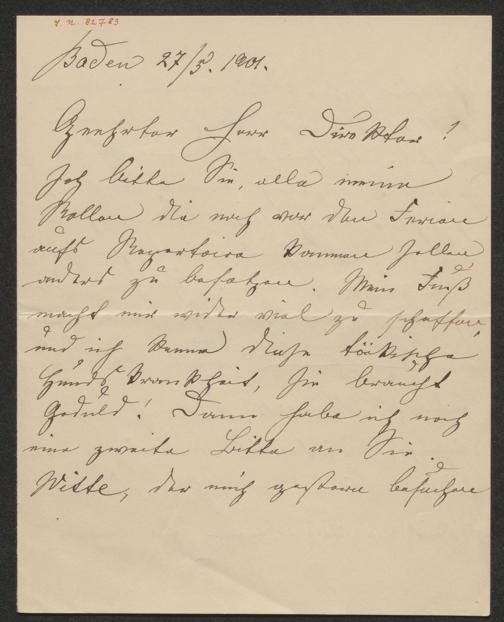 I. N. 82783
Baden 27/5. 1901.
Geehrter Herr Direktor!
Ich bitte Sie, alle meine
Rollen die noch vor den Ferien
aufs Repertoire kommen sollen
anders zu besetzen. Mein Fuß
macht mir wider viel zu schaffen,
und ich kenne diese tückische
Hundskrankheit, sie braucht
Geduld! Dann habe ich noch
eine zweite Bitte an Sie.
Witte, der mich gestern besuchen